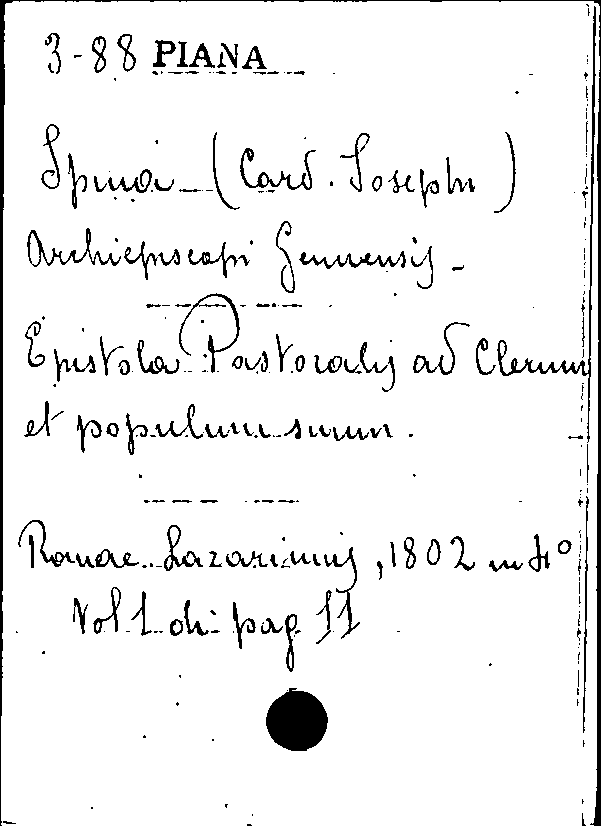 3-88 PIANA
Spina (Card. Joseph)
Archiepiscopi Genuensis -
Epistola Pastoralis ad Clerum
et populum suum.
Romae Lazarinis, 1802 in 4°
Vol 1 di pag 11